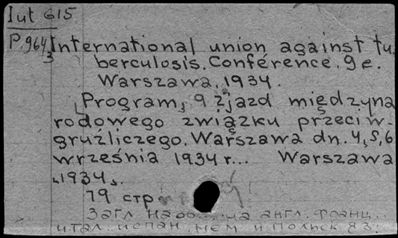 Iut 615
P.964/3
International union against tu-
berculosis. Conférence. 9e.
Warszawa. 1934.
"Program, 9 zjazd międzyna
rodowego związku przeciw-
gruźliczego. Warszawa dn. 4,5,6
września 1934 r... Warszawa
1934.
79 стр
Загл. на англ. франц.
итал. испан. нем. и польск яз.